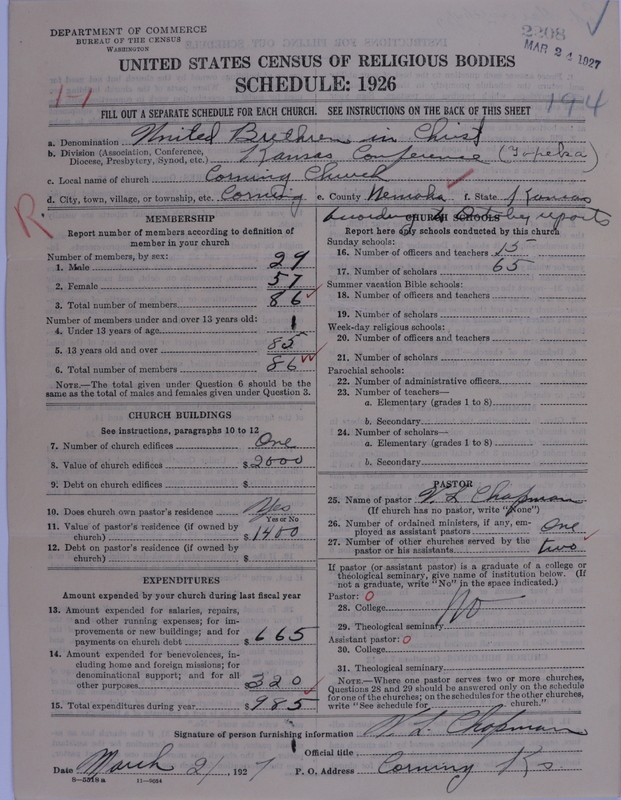 DEPARTMENT OF COMMERCE
BUREAU OF THE CENSUS
WASHINGTON
2308
MAR 24 1927
UNITED STATES CENSUS OF RELIGIOUS BODIES
SCHEDULE: 1926
11
194
FILL OUT A SEPARATE SCHEDULE FOR EACH CHURCH. SEE INSTRUCTIONS ON THE BACK OF THIS SHEET
a. Denomination United Brethren in Christ
b. Division (Association, Conference, Diocese, Presbytery, Synod, etc.) Kansas Conference (Topeka)
c. Local name of church Corning Church
d. City, town, village, or township, etc. Corning e. County Nemaha f. State Kansas
R
according to reports
MEMBERSHIP
Report number of members according to definition of
member in your church
Number of members, by sex:
1. Male 29
2. Female 57
3. Total number of members 86
Number of members under and over 13 years old:
4. Under 13 years of age 1
5. 13 years old and over 85
6. Total number of members 86
NOTE.—The total given under Question 6 should be the
same as the total of males and females given under Question 3.
CHURCH BUILDINGS
See instructions, paragraphs 10 to 12
7. Number of church edifices One
8. Value of church edifices $2000
9. Debt on church edifices $
10. Does church own pastor's residence Yes
Yes or No
11. Value of pastor's residence (if owned by
church) $1400
12. Debt on pastor's residence (if owned by
church) $
EXPENDITURES
Amount expended by your church during last fiscal year
13. Amount expended for salaries, repairs,
and other running expenses; for im-
provements or new buildings; and for
payments on church debt $665
14. Amount expended for benevolences, in-
cluding home and foreign missions; for
denominational support; and for all
other purposes $320
15. Total expenditures during year $985
CHURCH SCHOOLS
Report here only schools conducted by this church
Sunday schools:
16. Number of officers and teachers 15
17. Number of scholars 65
Summer vacation Bible schools:
18. Number of officers and teachers
19. Number of scholars
Week-day religious schools:
20. Number of officers and teachers
21. Number of scholars
Parochial schools:
22. Number of administrative officers
23. Number of teachers—
a. Elementary (grades 1 to 8)
b. Secondary
24. Number of scholars—
a. Elementary (grades 1 to 8)
b. Secondary
PASTOR
25. Name of pastor W. L. Chapman
(If church has no pastor, write "None")
26. Number of ordained ministers, if any, em-
ployed as assistant pastors One
27. Number of other churches served by the
pastor or his assistants two
If pastor (or assistant pastor) is a graduate of a college or
theological seminary, give name of institution below. (If
not a graduate, write "No" in the space indicated.)
Pastor: 0
28. College No
29. Theological seminary
Assistant pastor: 0
30. College
31. Theological seminary
NOTE.—Where one pastor serves two or more churches,
Questions 28 and 29 should be answered only on the schedule
for one of the churches; on the schedules for the other churches,
write "See schedule for church."
Signature of person furnishing information W. L. Chapman
Official title
Date March 21, 1927 P. O. Address Corning Ks.
8—5518a 11—9054